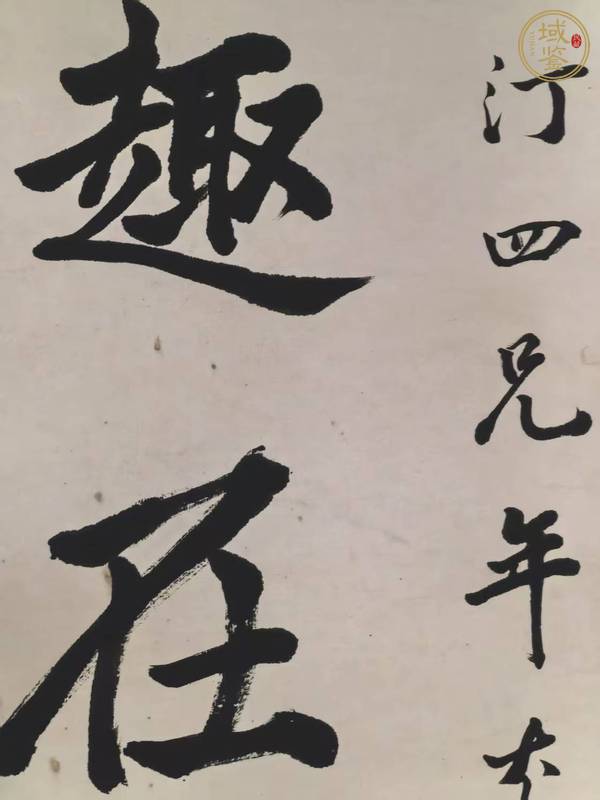 汀四兄年大
趣在
域鉴